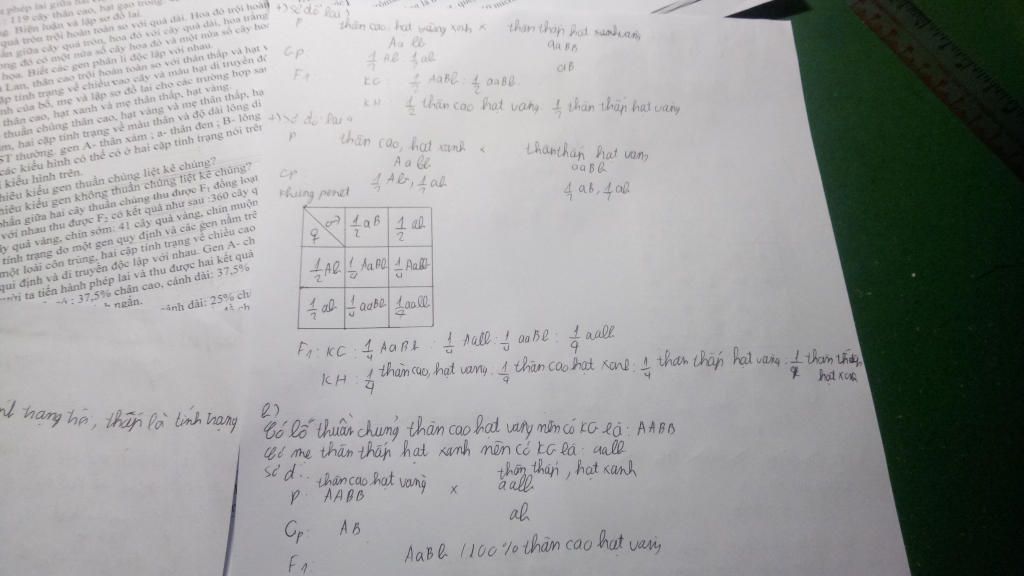 119 cây thân cao, hạt gạo trong.
Biện luận và lập sơ đồ lai.
quả tròn trội hoàn toàn so với quả dài. Hoa đỏ trội hoàn
phấn giữa cây quả tròn, hoa đỏ với cây quả dài, hoa trắng
trong đó có một nửa số cây hoa đỏ và một nửa số cây ho
họa. Biết các gen phân li độc lập với nhau.
Lan, thân cao trội hoàn toàn so với thân thấp và hạt v
cặp tính trạng về chiều cao cây và màu hạt di truyền độ
hình của bố, mẹ và lập sơ đồ lai cho các trường hợp sau
thân cao, hạt xanh và mẹ thân thấp, hạt vàng.
thuần chủng thân cao, hạt vàng và mẹ thân thấp, hạ
hai cặp tính trạng về màu thân và độ dài lông di
ST thường. gen A- thân xám ; a- thân đen ; B- lông
các kiểu hình có thể có ở hai cặp tính trạng nói trên
kiểu hình trên.
nhiêu kiểu gen thuần chủng liệt kê chúng?
nhiêu kiểu gen không thuần chủng liệt kê chúng?
phấn giữa hai cây thuần chủng thu được F₁ đồng loạt
với nhau thu được F₂ có kết quả như sau :360 cây q
cây quả vàng, chín sớm: 41 cây quả vàng, chín muộn
tính trạng do một gen quy định và các gen nằm trê
một loài côn trùng, hai cặp tính trạng về chiều cao
qui định và di truyền độc lập với nhau. Gen A- ch
ta tiến hành phép lai và thu được hai kết quả
: 37,5% chân cao, cánh dài: 37,5%
cánh dài: 25% ch
h ngắn.
trạng
thấp là tính trạng
+) Sơ đồ lai
P thân cao, hạt xanh × thân thấp hạt vàng
Aa bb aaBB
Gp: 1/2 Ab : 1/2 ab aB
F1: KG : 1/2 AaBb : 1/2 aaBb
KH : 1/2 thân cao hạt vang : 1/2 thân thấp hạt vang
+) Sơ đồ lai
P thân cao, hạt xanh × thân thấp hạt vang
Aa bb aaBb
Gp 1/2 Ab, 1/2 ab 1/2 aB, 1/2 ab
Khung penet
♀ ♂ 1/2 aB 1/2 ab
1/2 Ab 1/4 AaBb 1/4 Aabb
1/2 ab 1/4 aaBb 1/4 aabb
F1: KG : 1/4 AaBb : 1/4 Aabb : 1/4 aaBb : 1/4 aabb
KH : 1/4 thân cao, hạt vang : 1/4 thân cao hạt xanh : 1/4 thân thấp hạt vang : 1/4 thân thấp
hạt xanh
b)
Có bố thuần chủng thân cao hạt vang nên có KG là : AABB
Có mẹ thân thấp hạt xanh nên có KG là : aabb
Sơ đ :
thân cao hạt vàng thân thấp, hạt xanh
P: AABB × aabb
Gp: AB ab
F1: AaBb 100% thân cao hạt vang